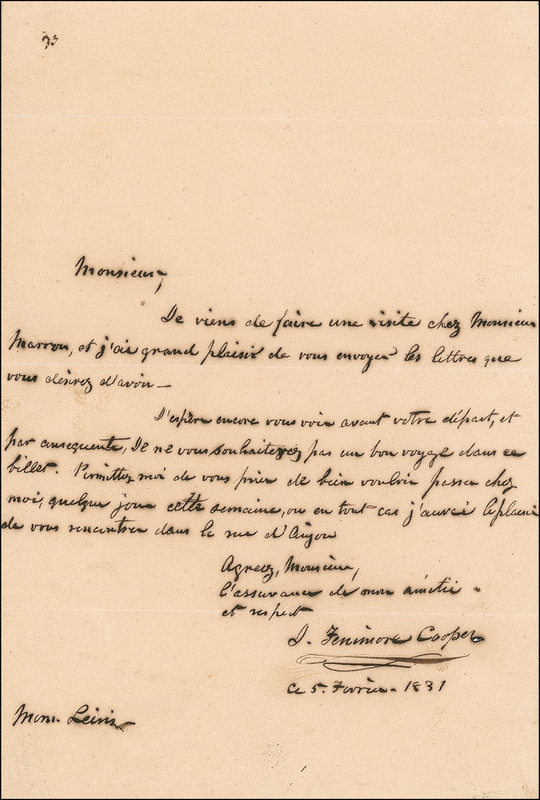 33
Monsieur,
De viens de faire une visite chez Monsieur
Marron, et j'ais grand plaisir de vous envoyer les lettres que
vous désirez d'avoir—
J'espère encore vous voir avant votre départ, et
par consequente, De ne vous souhaiterez pas un bon voyage dans ce
billet. Permittez moi de vous prier de bien vouloir passer chez
moi, quelque jour cette semaine, ou en tout cas j'aurai le plaisir
de vous rencontrer dans la rue d'Anjou
Agreez, Monsieur,
l'assurance de mon amitié
et respect
J. Fenimore Cooper
Ce 5. Fevrier. 1831
Mons.